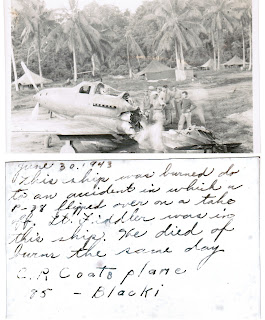 June 30, 1943
This ship was burned do
to an accident in which a
P-38 flipped over on a take
off. Lt. Fiddler was in
this ship. He died of
burns the same day
C. P. Coats plane
85 - Blacki